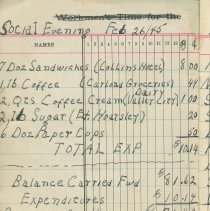 Workmen's Time for the
Social Evening Feb 26/45
NAMES 1 2 3 4 5 6 7 8 9 10 11 12 13 $ ¢
7 Doz Sandwiches (Collins) 8 00
1 lb Coffee (Carload Groceries) 49
2 Qts Coffee Cream (Valley City Dairy) 1 00
2 lb Sugar (Et. Horsley) 20
6 Doz Paper Cups 50
TOTAL EXP $10.14
Balance Carried Fwd $31.62
Expenditures $10.14